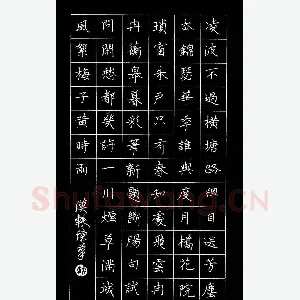 凌波不過橫塘路但目送芳塵
去錦瑟華年誰與度月橋花院
瑣窗朱戶只有春知處飛雲冉
冉蘅皋暮彩筆新題斷腸句試
問閒愁都幾許一川煙草滿城
風絮梅子黃時雨
Shufawang.CN